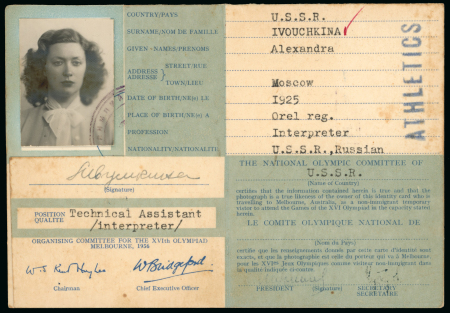 COUNTRY/PAYS U.S.S.R.
SURNAME/NOM DE FAMILLE IVOUCHKINA
GIVEN-NAMES/PRENOMS Alexandra
ADDRESS ADRESSE } STREET/RUE
TOWN/LIEU Moscow
DATE OF BIRTH/NE(e) LE 1925
PLACE OF BIRTH/NE(e) A Orel reg.
PROFESSION Interpreter
NATIONALITY/NATIONALITE U.S.S.R.,Russian
ATHLETICS
(Signature)
POSITION
QUALITE
Technical Assistant
/interpreter/
ORGANISING COMMITTEE FOR THE XVIth OLYMPIAD
MELBOURNE, 1956
W. S. Kent Hughes
W Bridgeford
Chairman
Chief Executive Officer
THE NATIONAL OLYMPIC COMMITTEE OF
U.S.S.R.
(Name of Country)
certifies that the information contained herein is true and that the
photograph is a true likeness of the owner of this identity card who is
travelling to Melbourne, Australia, as a non-immigrant temporary
visitor to attend the Games of the XVI Olympiad in the capacity stated
herein.
LE COMITE OLYMPIQUE NATIONAL DE
(Nom du Pays)
certifie que les renseignements donnés par cette carte d'identité sont
exacts, et que la photographie est celle du porteur qui va à Melbourne
pour les XVImes Jeux Olympiques comme visiteur non-immigrant dans
qualité indiquée
PRESIDENT (Signature) SECRETARY
SECRETAIRE